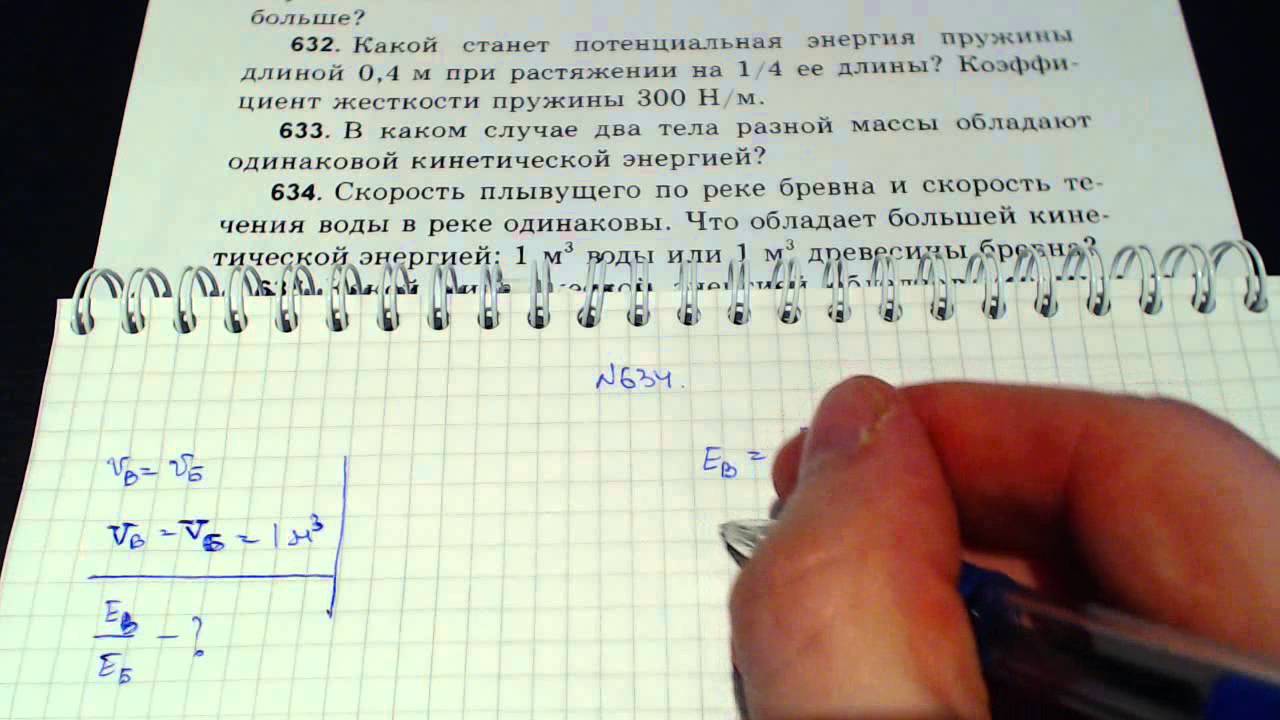 больше?
632. Какой станет потенциальная энергия пружины
длиной 0,4 м при растяжении на 1/4 ее длины? Коэффи-
циент жесткости пружины 300 Н/м.
633. В каком случае два тела разной массы обладают
одинаковой кинетической энергией?
634. Скорость плывущего по реке бревна и скорость те-
чения воды в реке одинаковы. Что обладает большей кине-
тической энергией: 1 м³ воды или 1 м³ древесины бревна?
N634.
v_В = v_Б
V_В = V_Б = 1 м³
E_В =
E_В / E_Б - ?